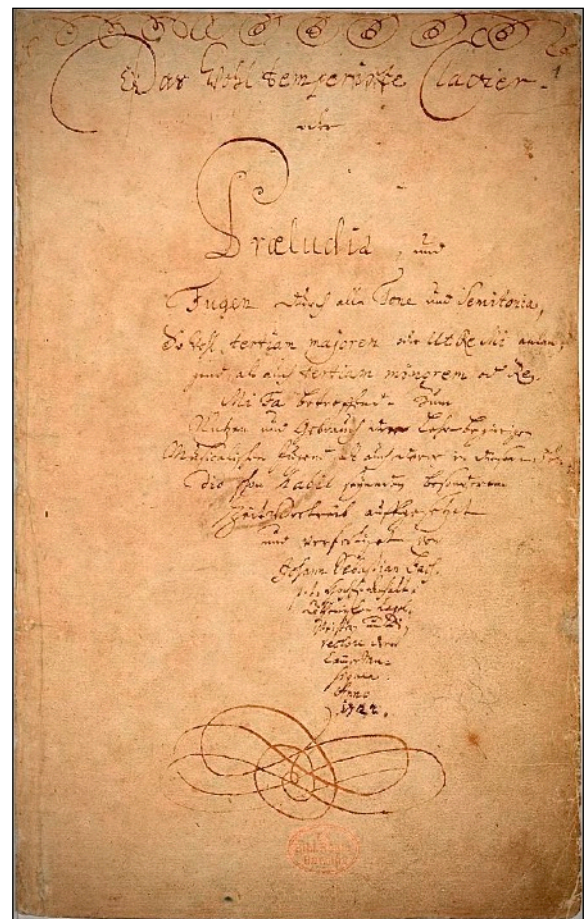 Das Wohl temperirte Clavier.
oder
Præludia, und
Fugen durch alle Tone und Semitonia,
So wohl tertiam majorem oder Ut Re Mi anlan-
gend, als auch tertiam minorem oder Re
Mi Fa betreffend. Zum
Nutzen und Gebrauch der Lehrbegierigen
Musicalischen Jugend, als auch derer in diesem stu-
dio schon habil seyenden besonderem
Zeitvertreib auffgesetzet
und verfertiget von
Johann Sebastian Bach.
p. t. Hochfürstlich
Cöthenischen Capel-
Meistern und Di-
rectore derer
Cammer Mu-
siquen.
Anno
1722.